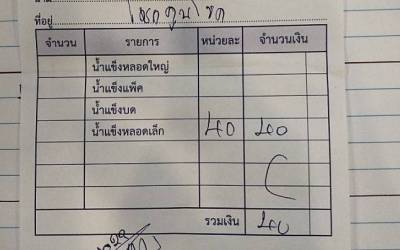 ที่อยู่ โชคคูนโชค
จำนวน รายการ หน่วยละ จำนวนเงิน
น้ำแข็งหลอดใหญ่
น้ำแข็งแพ็ค
น้ำแข็งบด
น้ำแข็งหลอดเล็ก 40 40
รวมเงิน 40